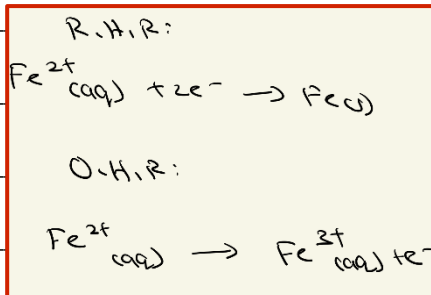 R.H.R:
Fe²⁺(aq) + 2e⁻ → Fe(s)
O.H.R:
Fe²⁺(aq) → Fe³⁺(aq) + e⁻